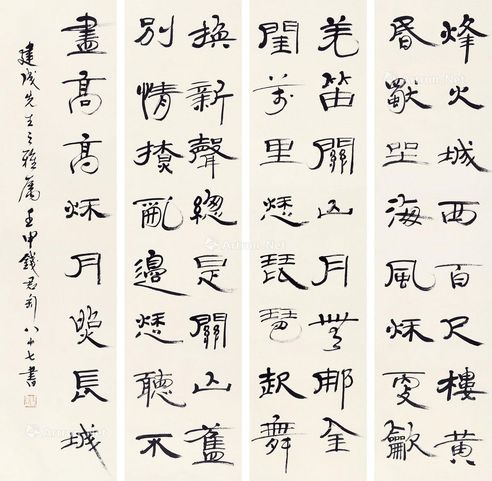 烽火城西百尺樓黄
昏獨坐海風秋更龡
羌笛關山月無那金
閨萬里愁琵琶起舞
換新聲總是關山舊
別情撩亂邊愁聽不
盡高高秋月照長城
建成先生之雅屬壬申錢君匋八十七書
Artron.Net